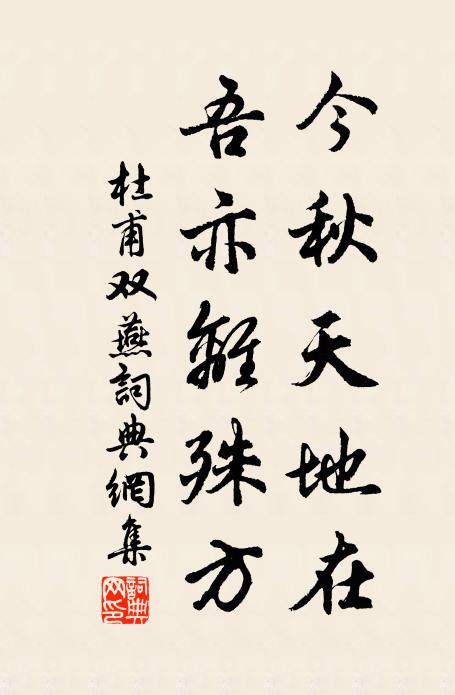 今秋天地在
吾亦離殊方
杜甫双燕詞典網集
詞典網印